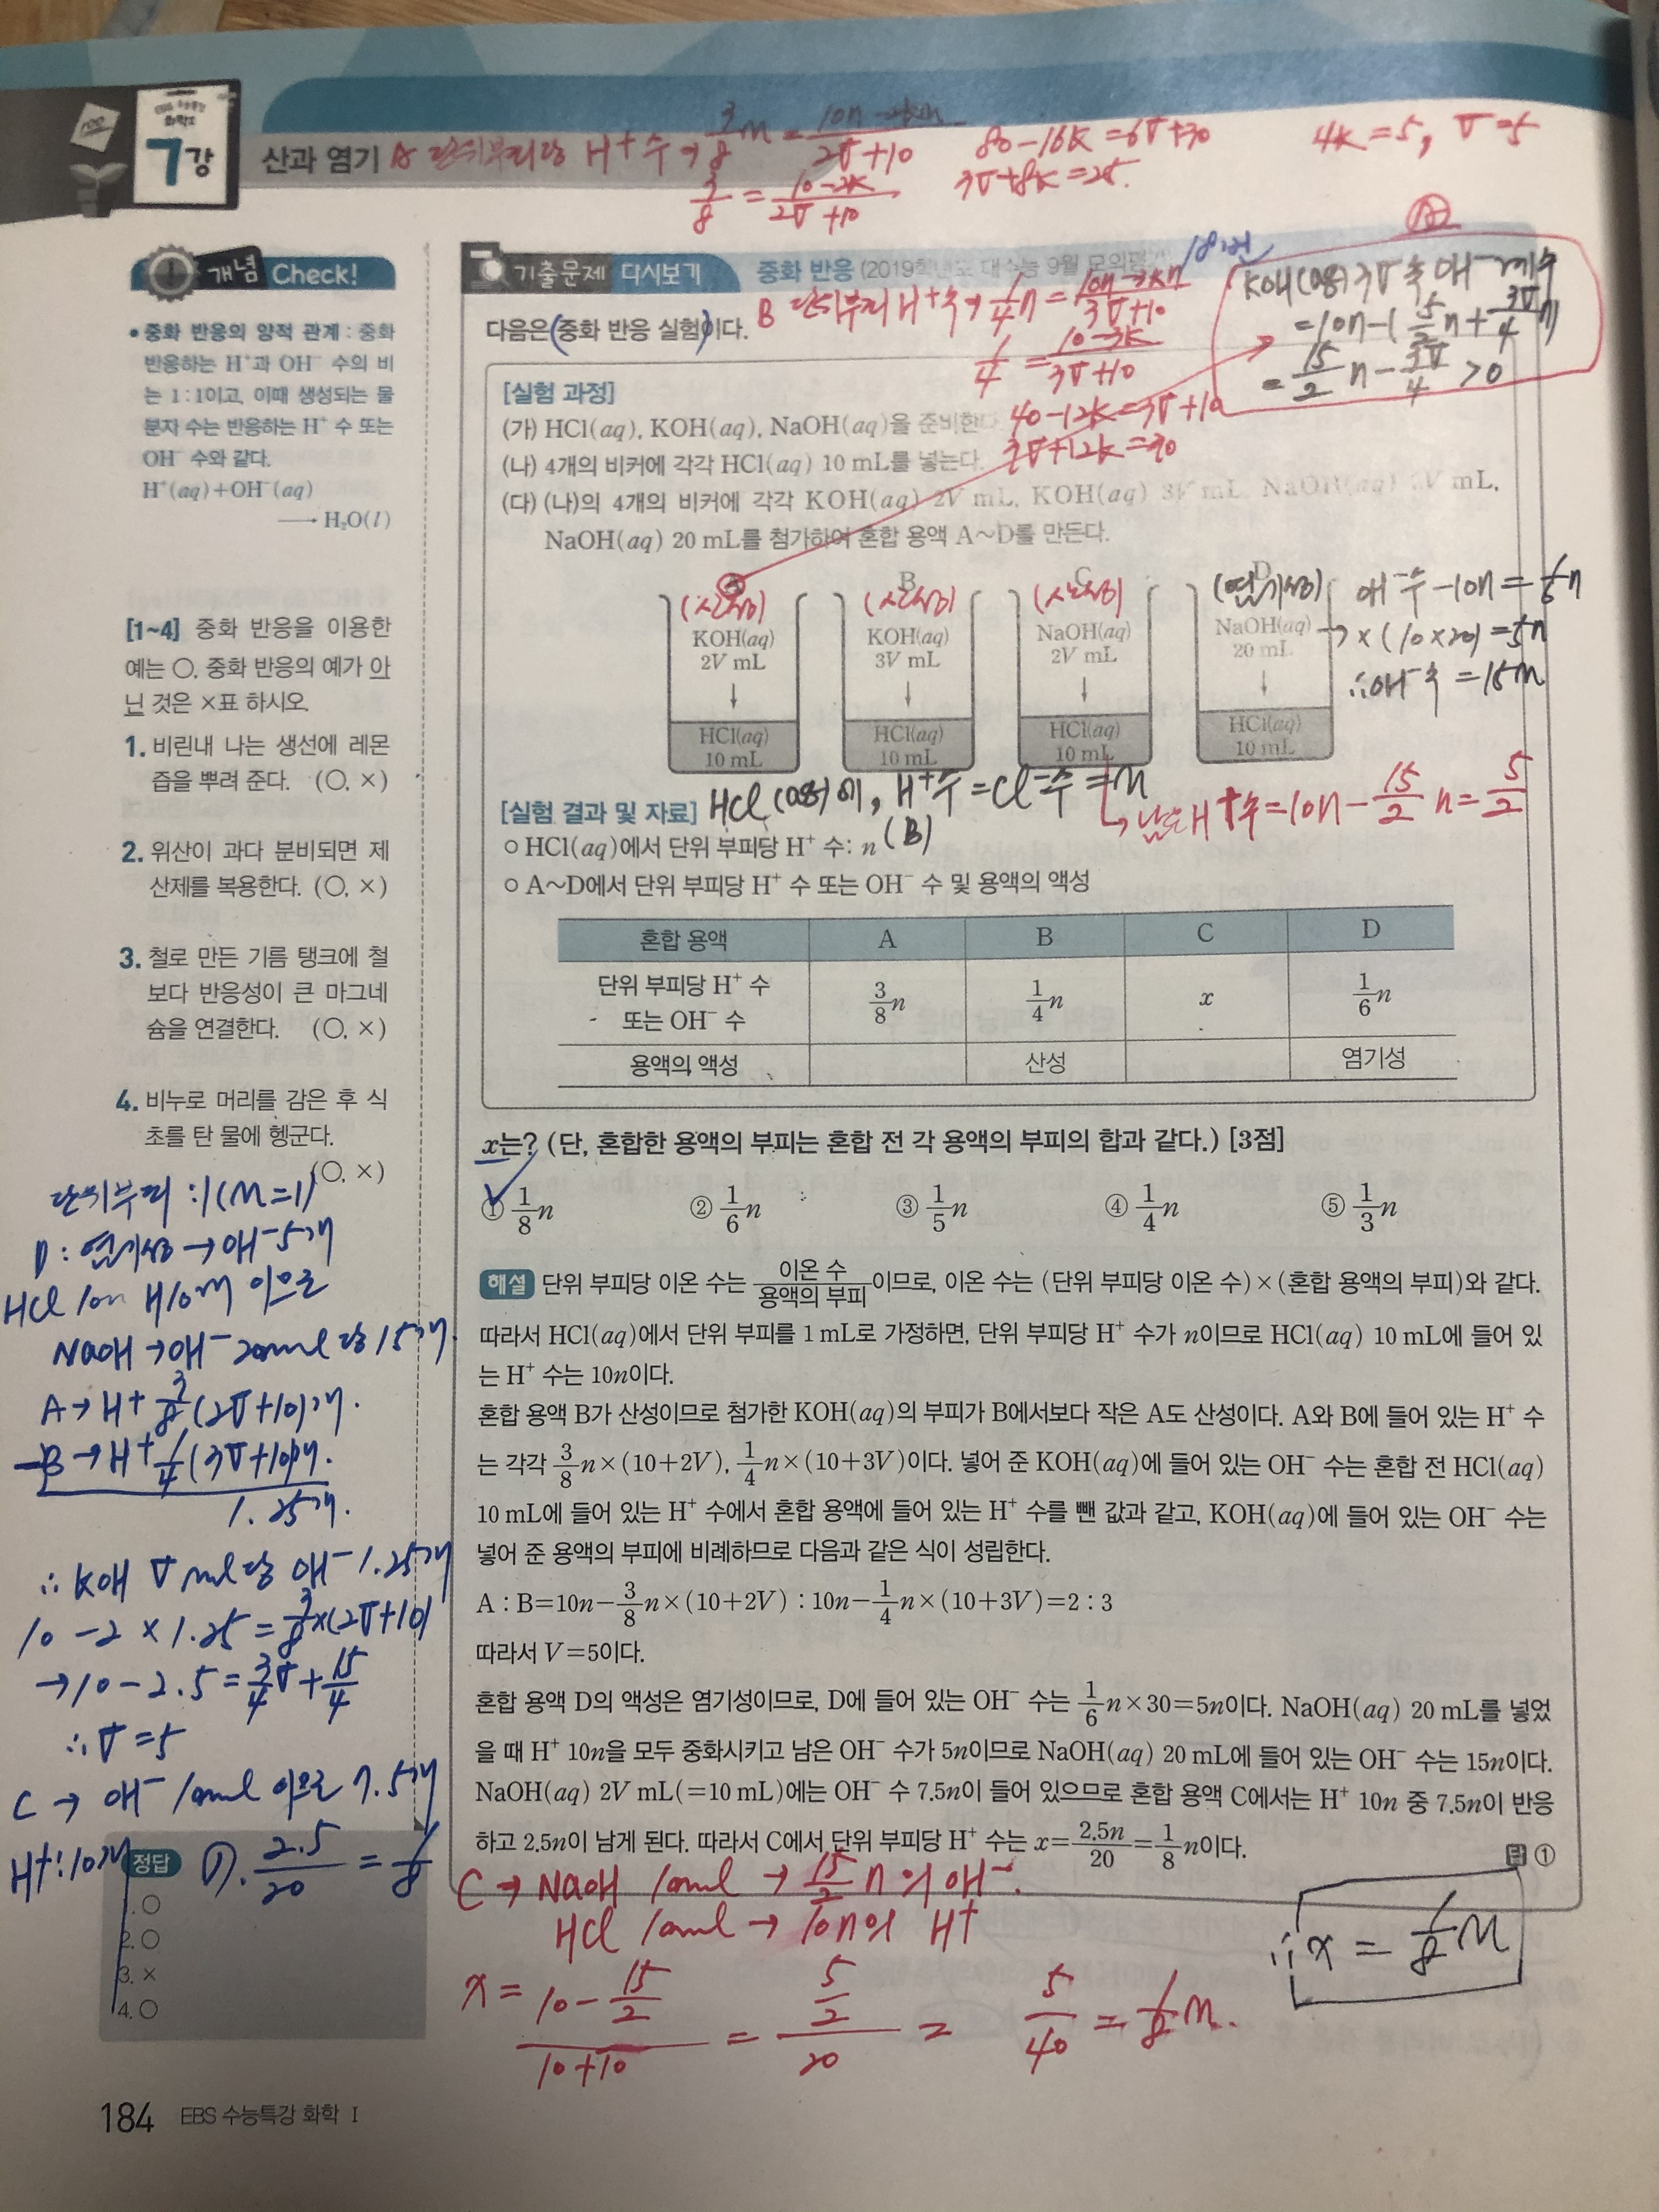 7강
산과 염기 A 단위부피당 H+ 수 → 3/8 n = (10n-2kn)/(2V+10)
80-16k=6V+30
4k=5, V=5
3/8 = (10-2k)/(2V+10)
3V+8k=25.
개념 Check!
• 중화 반응의 양적 관계 : 중화
반응하는 H⁺과 OH⁻ 수의 비
는 1 : 1이고, 이때 생성되는 물
분자 수는 반응하는 H⁺ 수 또는
OH⁻ 수와 같다.
H⁺(aq)+OH⁻(aq)
⟶ H₂O(l)
[1~4] 중화 반응을 이용한
예는 ○, 중화 반응의 예가 아
닌 것은 ×표 하시오.
1. 비린내 나는 생선에 레몬
즙을 뿌려 준다. (○, ×)
2. 위산이 과다 분비되면 제
산제를 복용한다. (○, ×)
3. 철로 만든 기름 탱크에 철
보다 반응성이 큰 마그네
슘을 연결한다. (○, ×)
4. 비누로 머리를 감은 후 식
초를 탄 물에 헹군다.
(○, ×)
단위부피 : 1(n=1)
D : 염기성 → OH⁻ 5개
HCl 10ml H 10개 이므로
NaOH → OH⁻ 20ml 당 15개.
A → H+ 3/8 (2V+10)개.
-B → H+ 1/4 (3V+10)개.
1.25개.
∴ KOH V ml당 OH⁻ 1.25개
10-2×1.25=3/8×(2V+10)
→10-2.5=3/4V+15/4
∴ V=5
C → OH⁻ 10ml 이므로 7.5개
H+:10개
①. 2.5/20 = 1/8
정답
1. ○
2. ○
3. ×
4. ○
기출문제 다시보기 중화 반응 (2019학년도 대수능 9월 모의평가 18번
다음은 중화 반응 실험이다.
B 단위부피 H+수 → 1/4 n = (10n-3kn)/(3V+10)
1/4 = (10-3k)/(3V+10)
40-12k=3V+10
3V+12k=30
KOH(aq) 3V 속 OH⁻ 개수
=10n-(5/2 n+3V/4 n)
=15/2 n-3V/4 >0
[실험 과정]
(가) HCl(aq), KOH(aq), NaOH(aq)을 준비한
(나) 4개의 비커에 각각 HCl(aq) 10 mL를 넣는다.
(다) (나)의 4개의 비커에 각각 KOH(aq) 2V mL, KOH(aq) 3V mL, NaOH(aq) 2V mL,
NaOH(aq) 20 mL를 첨가하여 혼합 용액 A~D를 만든다.
A B C D
(산성) (산성) (산성) (염기성)
KOH(aq) KOH(aq) NaOH(aq) NaOH(aq)
2V mL 3V mL 2V mL 20 mL
HCl(aq) HCl(aq) HCl(aq) HCl(aq)
10 mL 10 mL 10 mL 10 mL
OH⁻수-10n = 1/6n
→ ×(10×20)=5n
∴OH⁻수 =15n
HCl(aq)에, H+수=Cl⁻수=n
(B)
남은 H+수=10n-15/2 n=5/2
[실험 결과 및 자료]
○ HCl(aq)에서 단위 부피당 H⁺ 수: n
○ A~D에서 단위 부피당 H⁺ 수 또는 OH⁻ 수 및 용액의 액성
혼합 용액 A B C D
단위 부피당 H⁺ 수
또는 OH⁻ 수 3/8 n 1/4 n x 1/6 n
용액의 액성 산성 염기성
x는? (단, 혼합한 용액의 부피는 혼합 전 각 용액의 부피의 합과 같다.) [3점]
① 1/8 n ② 1/6 n ③ 1/5 n ④ 1/4 n ⑤ 1/3 n
해설 단위 부피당 이온 수는 이온 수/용액의 부피 이므로, 이온 수는 (단위 부피당 이온 수)×(혼합 용액의 부피)와 같다.
따라서 HCl(aq)에서 단위 부피를 1 mL로 가정하면, 단위 부피당 H⁺ 수가 n이므로 HCl(aq) 10 mL에 들어 있
는 H⁺ 수는 10n이다.
혼합 용액 B가 산성이므로 첨가한 KOH(aq)의 부피가 B에서보다 작은 A도 산성이다. A와 B에 들어 있는 H⁺ 수
는 각각 3/8 n×(10+2V), 1/4 n×(10+3V)이다. 넣어 준 KOH(aq)에 들어 있는 OH⁻ 수는 혼합 전 HCl(aq)
10 mL에 들어 있는 H⁺ 수에서 혼합 용액에 들어 있는 H⁺ 수를 뺀 값과 같고, KOH(aq)에 들어 있는 OH⁻ 수는
넣어 준 용액의 부피에 비례하므로 다음과 같은 식이 성립한다.
A : B=10n-3/8 n×(10+2V) : 10n-1/4 n×(10+3V)=2 : 3
따라서 V=5이다.
혼합 용액 D의 액성은 염기성이므로, D에 들어 있는 OH⁻ 수는 1/6 n×30=5n이다. NaOH(aq) 20 mL를 넣었
을 때 H⁺ 10n을 모두 중화시키고 남은 OH⁻ 수가 5n이므로 NaOH(aq) 20 mL에 들어 있는 OH⁻ 수는 15n이다.
NaOH(aq) 2V mL(=10 mL)에는 OH⁻ 수 7.5n이 들어 있으므로 혼합 용액 C에서는 H⁺ 10n 중 7.5n이 반응
하고 2.5n이 남게 된다. 따라서 C에서 단위 부피당 H⁺ 수는 x=2.5n/20=1/8 n이다.
답 ①
C → NaOH 10ml → 15/2 n의 OH⁻.
HCl 10ml → 10n의 H+
x= (10-15/2)/(10+10) = (5/2)/20 = 5/40 = 1/8 n.
∴ x = 1/8 n
184 EBS 수능특강 화학 Ⅰ